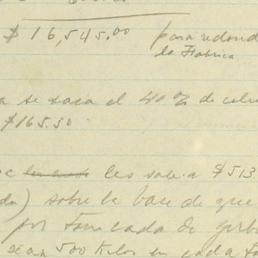 $ 16,545.00 para redond
la Fabrica
a se saca el 40% de
$165.50
les sale a $513
) sobre la base de que
por tonelada de
sean 500 Kilos en cada